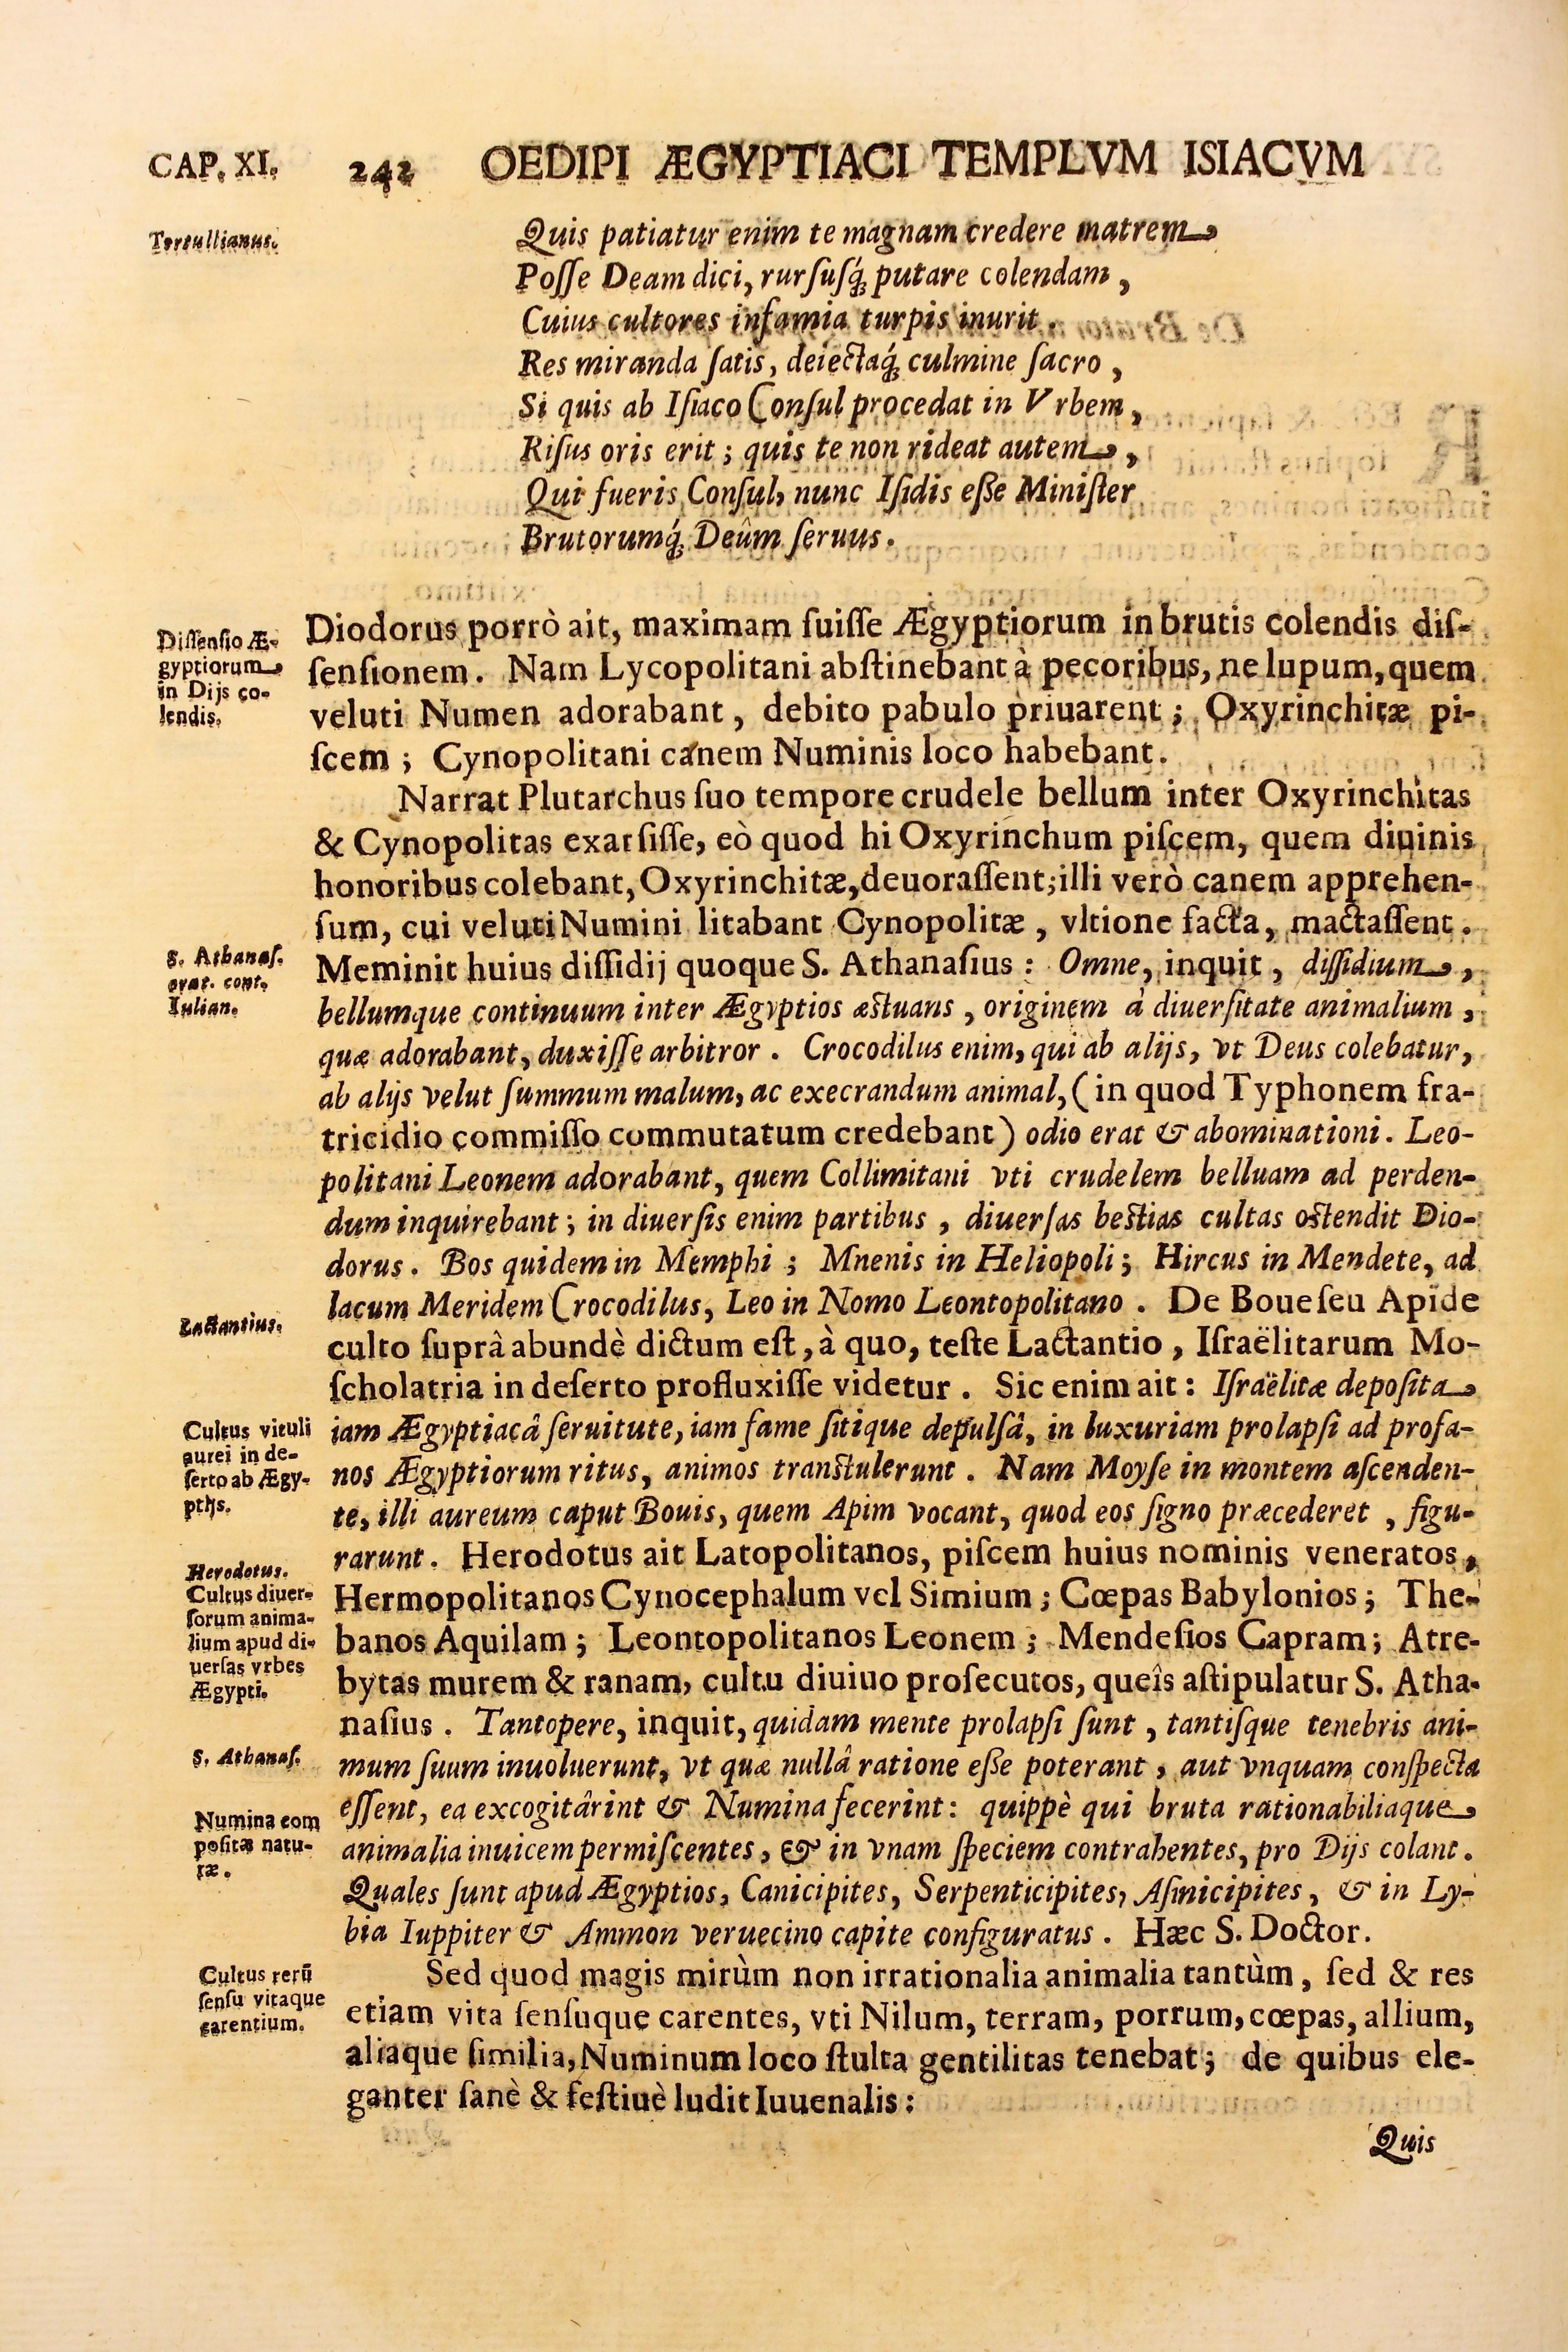 CAP. XI. 242 OEDIPI ÆGYPTIACI TEMPLVM ISIACVM
Tertullianus.
Quis patiatur enim te magnam credere matrem
Poſſe Deam dici, rurſuſq́; putare colendam,
Cuius cultores infamia turpis inurit.
Res miranda ſatis, deiectaq́; culmine ſacro,
Si quis ab Iſiaco Conſul procedat in Vrbem,
Riſus oris erit; quis te non rideat autem,
Qui fueris Conſul, nunc Iſidis eſſe Miniſter
Brutorumq́; Deûm ſeruus.
Diſſenſio Æ-
gyptiorum
in Dijs co-
lendis.
Diodorus porrò ait, maximam fuiſſe Ægyptiorum in brutis colendis diſ-
ſenſionem. Nam Lycopolitani abſtinebant à pecoribus, ne lupum, quem
veluti Numen adorabant, debito pabulo priuarent; Oxyrinchitæ pi-
ſcem; Cynopolitani canem Numinis loco habebant.
Narrat Plutarchus ſuo tempore crudele bellum inter Oxyrinchitas
& Cynopolitas exarſiſſe, eò quod hi Oxyrinchum piſcem, quem diuinis
honoribus colebant, Oxyrinchitæ, deuoraſſent; illi verò canem apprehen-
ſum, cui veluti Numini litabant Cynopolitæ, vltione facta, mactaſſent.
S. Athanaſ.
orat. cont.
Iulian.
Meminit huius diſſidij quoque S. Athanaſius: Omne, inquit, diſſidium,
bellumque continuum inter Ægyptios æſtuans, originem à diuerſitate animalium,
quæ adorabant, duxiſſe arbitror. Crocodilus enim, qui ab alijs, vt Deus colebatur,
ab alijs velut ſummum malum, ac execrandum animal, (in quod Typhonem fra-
tricidio commiſſo commutatum credebant) odio erat & abominationi. Leo-
politani Leonem adorabant, quem Collimitani vti crudelem belluam ad perden-
dum inquirebant; in diuerſis enim partibus, diuerſas beſtias cultas oſtendit Dio-
dorus. Bos quidem in Memphi; Mnenis in Heliopoli; Hircus in Mendete, ad
lacum Meridem Crocodilus, Leo in Nomo Leontopolitano. De Boue ſeu Apide
Lactantius.
culto ſuprâ abundè dictum eſt, à quo, teſte Lactantio, Iſraëlitarum Mo-
ſcholatria in deſerto profluxiſſe videtur. Sic enim ait: Iſraëlitæ depoſita
Cultus vituli
aurei in de-
ſerto ab Ægy-
ptijs.
iam Ægyptiacâ ſeruitute, iam fame ſitique depulſâ, in luxuriam prolapſi ad profa-
nos Ægyptiorum ritus, animos tranſtulerunt. Nam Moyſe in montem aſcenden-
te, illi aureum caput Bouis, quem Apim vocant, quod eos ſigno præcederet, figu-
rarunt. Herodotus ait Latopolitanos, piſcem huius nominis veneratos,
Herodotus.
Cultus diuer-
ſorum anima-
lium apud di-
uerſas vrbes
Ægypti.
Hermopolitanos Cynocephalum vel Simium; Cœpas Babylonios; The-
banos Aquilam; Leontopolitanos Leonem; Mendeſios Capram; Atre-
bytas murem & ranam, cultu diuiuo proſecutos, queîs aſtipulatur S. Atha-
naſius. Tantopere, inquit, quidam mente prolapſi ſunt, tantiſque tenebris ani-
S. Athanaſ.
mum ſuum inuoluerunt, vt quæ nullâ ratione eſſe poterant, aut vnquam conſpecta
eſſent, ea excogitârint & Numina fecerint: quippè qui bruta rationabiliaque
Numina com
poſitæ natu-
ræ.
animalia inuicem permiſcentes, & in vnam ſpeciem contrahentes, pro Dijs colant.
Quales ſunt apud Ægyptios, Canicipites, Serpenticipites, Aſinicipites, & in Ly-
bia Iuppiter & Ammon veruecino capite configuratus. Hæc S. Doctor.
Cultus rerũ
ſenſu vitaque
carentium.
Sed quod magis mirùm non irrationalia animalia tantùm, ſed & res
etiam vita ſenſuque carentes, vti Nilum, terram, porrum, cœpas, allium,
aliaque ſimilia, Numinum loco ſtulta gentilitas tenebat; de quibus ele-
ganter ſanè & feſtiuè ludit Iuuenalis:
Quis